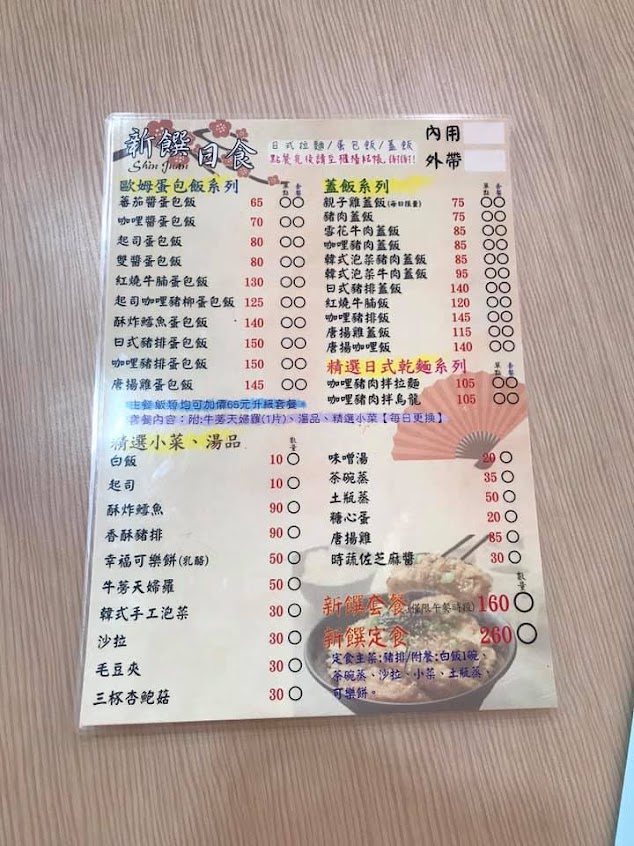 新饌日食
Shin Juan
日式拉麵/蛋包飯/蓋飯
點餐完後請至櫃檯結帳,謝謝!
內用
外帶
歐姆蛋包飯系列 單點 套餐
蕃茄醬蛋包飯 65 ○○
咖哩醬蛋包飯 70 ○○
起司蛋包飯 80 ○○
雙醬蛋包飯 80 ○○
紅燒牛腩蛋包飯 130 ○○
起司咖哩豬柳蛋包飯 125 ○○
酥炸鱈魚蛋包飯 140 ○○
日式豬排蛋包飯 150 ○○
咖哩豬排蛋包飯 150 ○○
唐揚雞蛋包飯 145 ○○
蓋飯系列 單點 套餐
親子雞蓋飯(每日限量) 75 ○○
豬肉蓋飯 75 ○○
雪花牛肉蓋飯 85 ○○
咖哩豬肉蓋飯 85 ○○
韓式泡菜豬肉蓋飯 85 ○○
韓式泡菜牛肉蓋飯 95 ○○
日式豬排蓋飯 140 ○○
紅燒牛腩飯 120 ○○
咖哩豬排飯 145 ○○
唐揚雞蓋飯 115 ○○
唐揚咖哩飯 140 ○○
精選日式乾麵系列 單點 套餐
咖哩豬肉拌拉麵 105 ○○
咖哩豬肉拌烏龍 105 ○○
主餐飯類均可加價65元升級套餐
套餐內容:附:牛蒡天婦羅(1片)、湯品、精選小菜【每日更換】
精選小菜、湯品 數量
白飯 10 ○
起司 10 ○
酥炸鱈魚 90 ○
香酥豬排 90 ○
幸福可樂餅(乳酪) 50 ○
牛蒡天婦羅 50 ○
韓式手工泡菜 30 ○
沙拉 30 ○
毛豆夾 30 ○
三杯杏鮑菇 30 ○
味噌湯 20 ○
茶碗蒸 35 ○
土瓶蒸 50 ○
糖心蛋 20 ○
唐揚雞 85 ○
時蔬佐芝麻醬 30 ○
數量
新饌套餐(僅限午餐時段) 160 ○
新饌定食 260 ○
定食主菜:豬排/附餐:白飯1碗、
茶碗蒸、沙拉、小菜、土瓶蒸、
可樂餅。